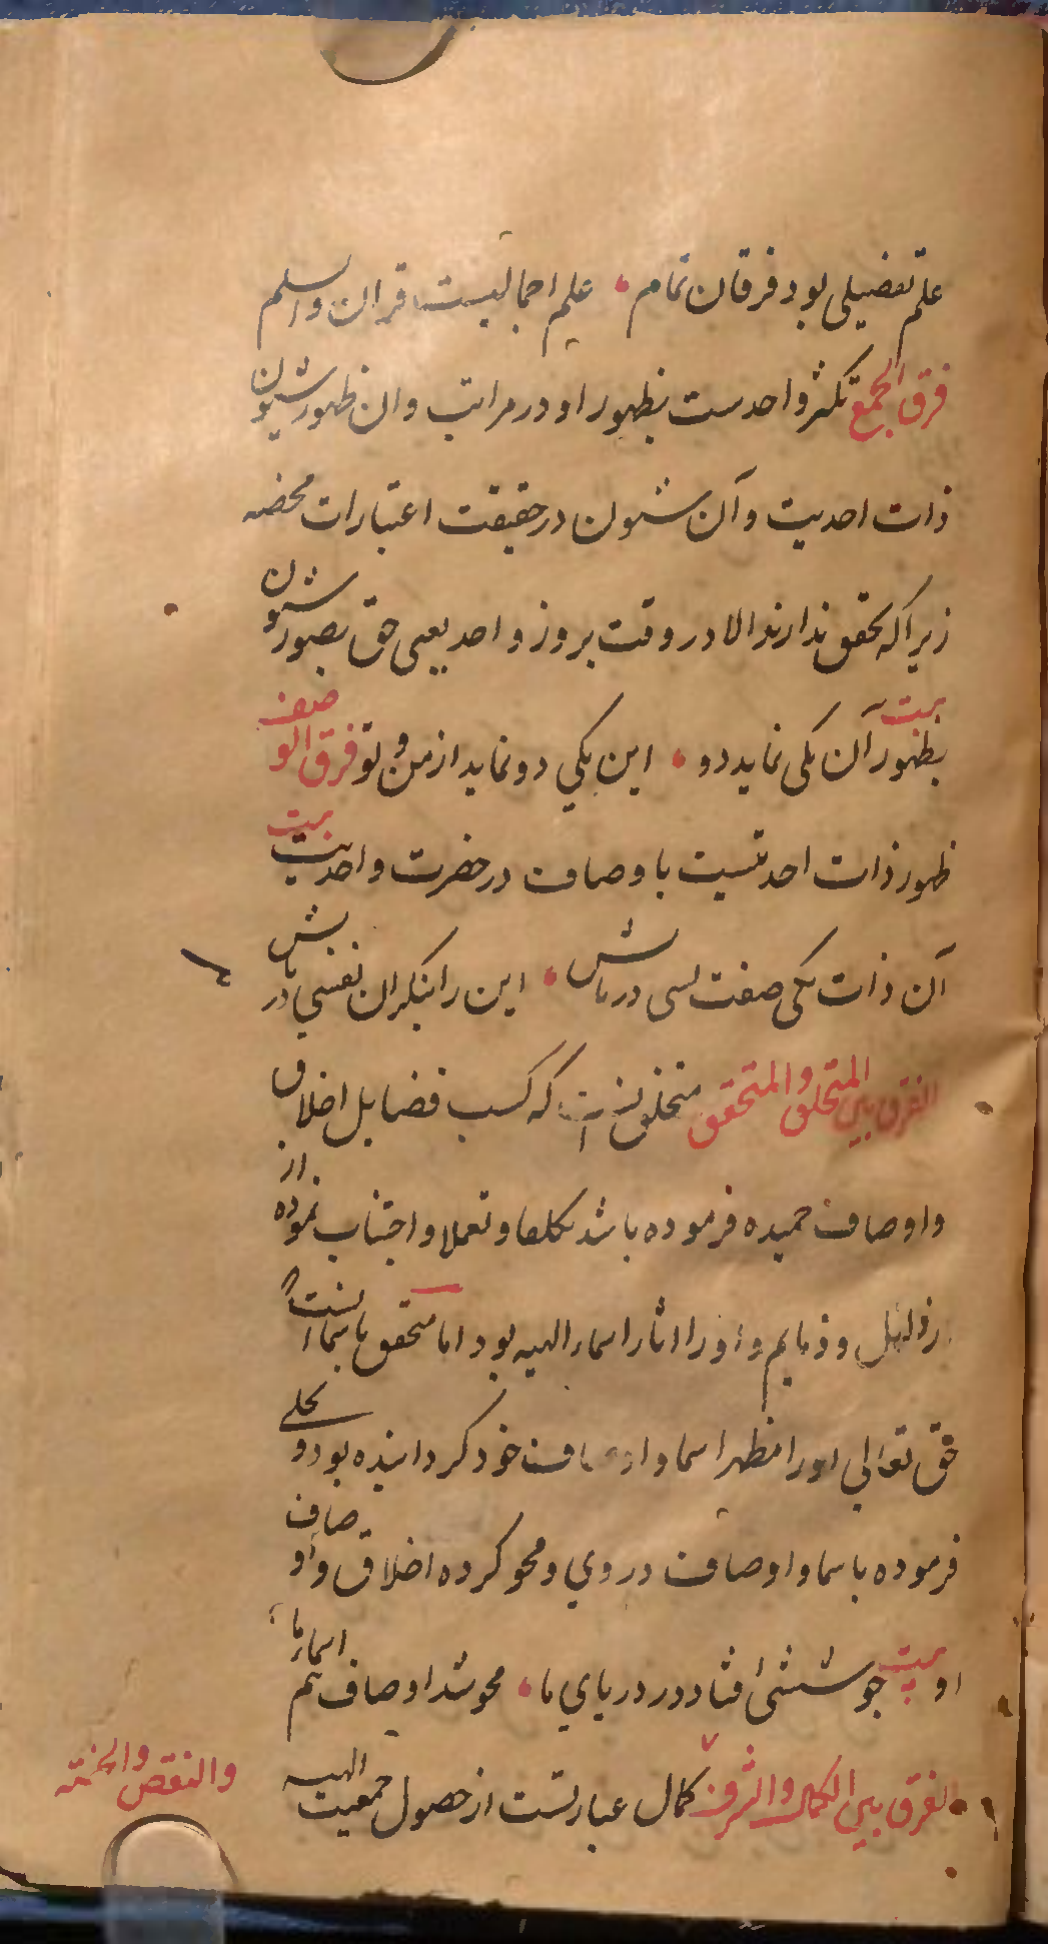 علم تفضیلی بود فرقان تمام • علم اجمالیست قران والسلم
فرق الجمع تکثر واحدست بظهور او در مراتب وان ظهور شیون
ذات احدیت و آن شئون در حقیقت اعتبارات محضه
زیرا که تحقق ندارند الا در وقت بروز واحد یعنی حق بصور شئون
بیت
بظهور آن یکی نماید دو • این یکی دو نماید از من و تو فرق الوصف
ظهور ذات احدیتست با وصاف در حضرت واحدیت بیت
آن ذات یکی صفت بسی دریابش • این را بنگر ان نفسی دریابش
الفرق بین المتخلق والمتحقق متخلق انست که کسب فضایل اخلاق
واوصاف حمیده فرموده باشد تکلفا وتعملا واجتناب نموده از
رذایل و ذمایم و اورا اثار اسماء الهیه بود اما متحقق باسما انست که
حق تعالی اورا مظهر اسما و اوصاف خود کردانیده بود و تجلی
فرموده باسما و اوصاف در وی و محو کرده اخلاق و اوصاف
او بیت جو شبنمی افتاد در دریای ما • محو شد اوصاف هم اسماء ما
الفرق بین الکمال والشرف کمال عبارتست از حصول جمعیت الهیه
والنقص والخسة